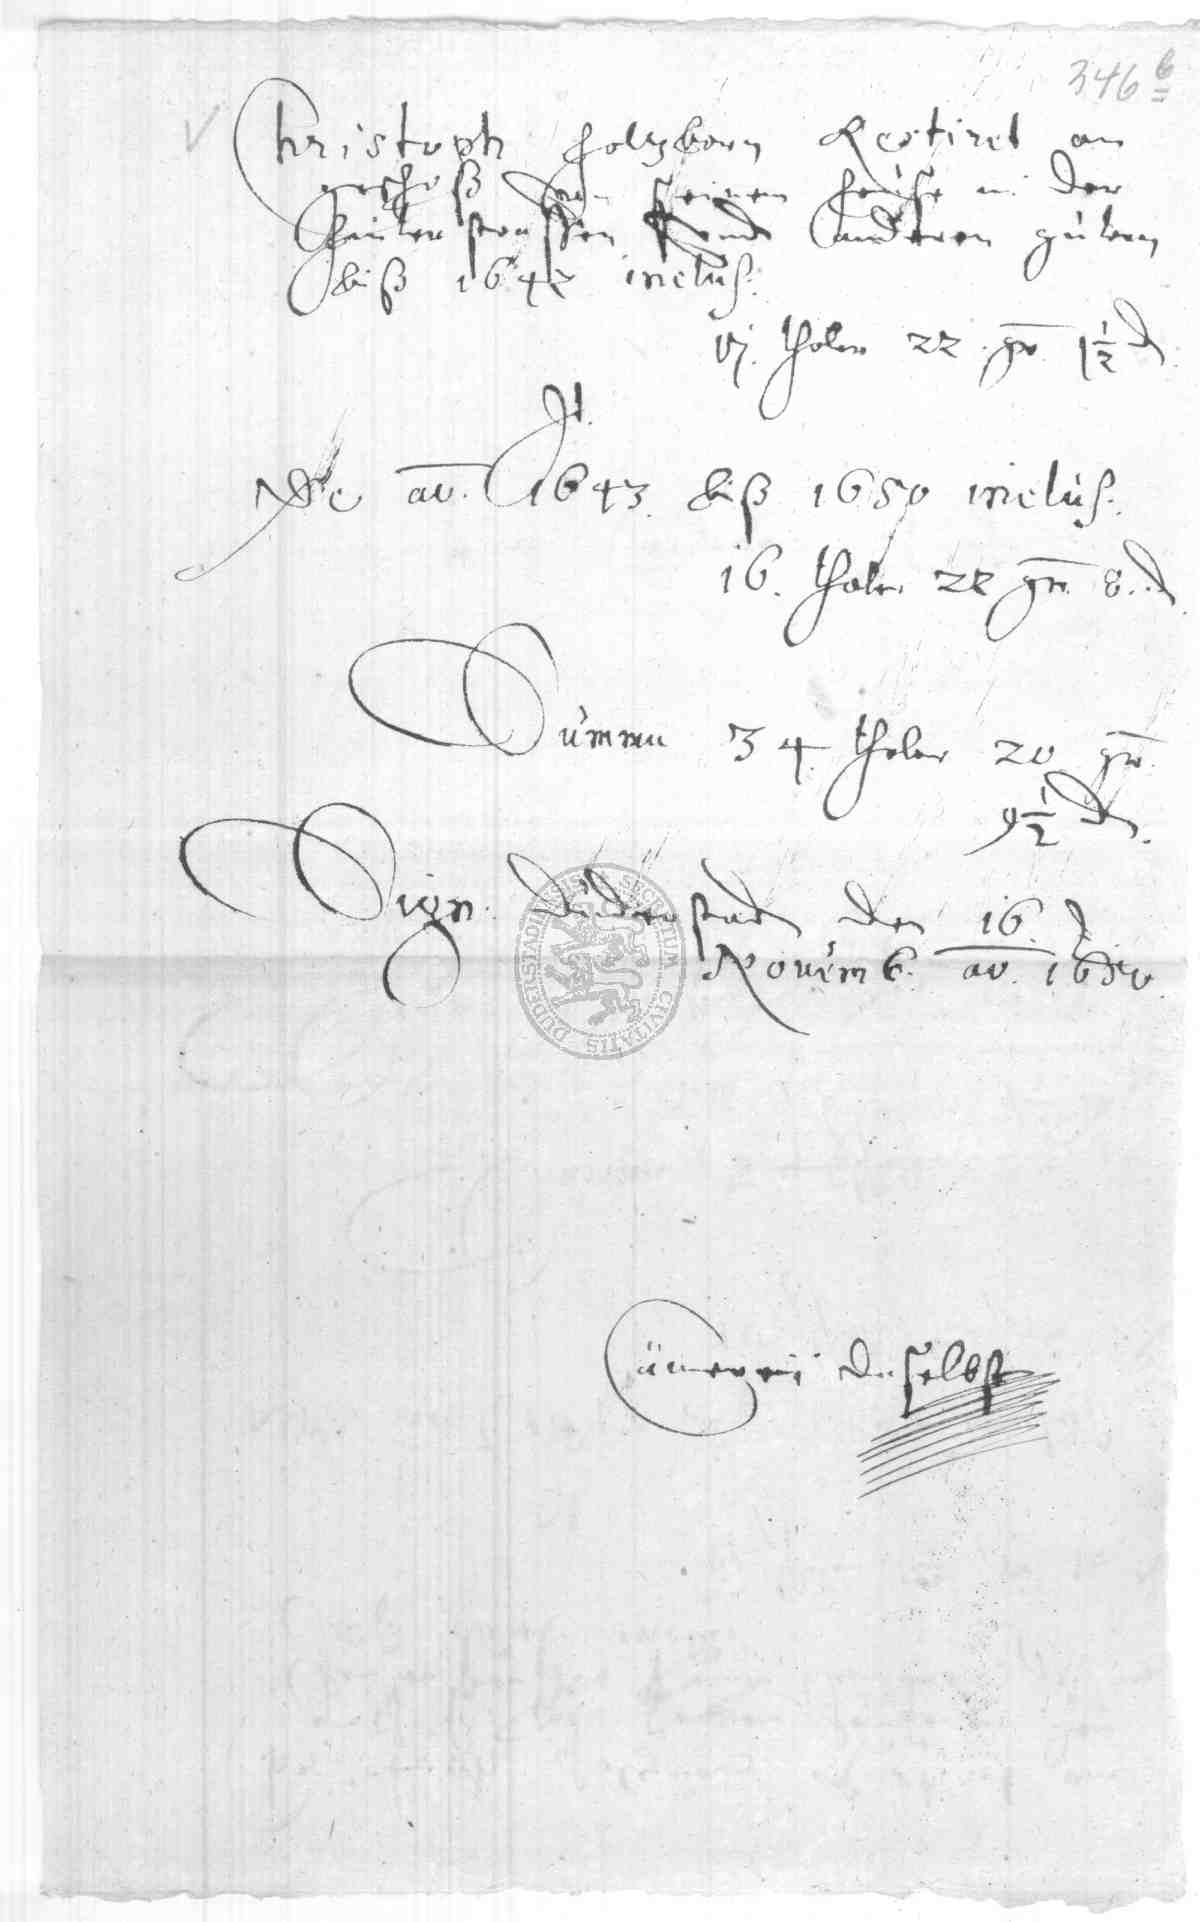 346 b
Christoph Holtzborn Restiret an
geschoß von seinem Hause in der
Hinterstrassen vnd anderen gütern
biß 1642 inclus.
thaler 22 gr 1 1/2 d
It.
De ao. 1643 biß 1650 inclus.
16. thaler 22 gr. 8 d
Summa 34 thaler 20 gr.
9 1/2 d.
Sign. Duderstadt den 16.
Novemb. ao. 1650
Cämerey daselbst
SECRETUM CIVITATIS DUDERSTADENSIS